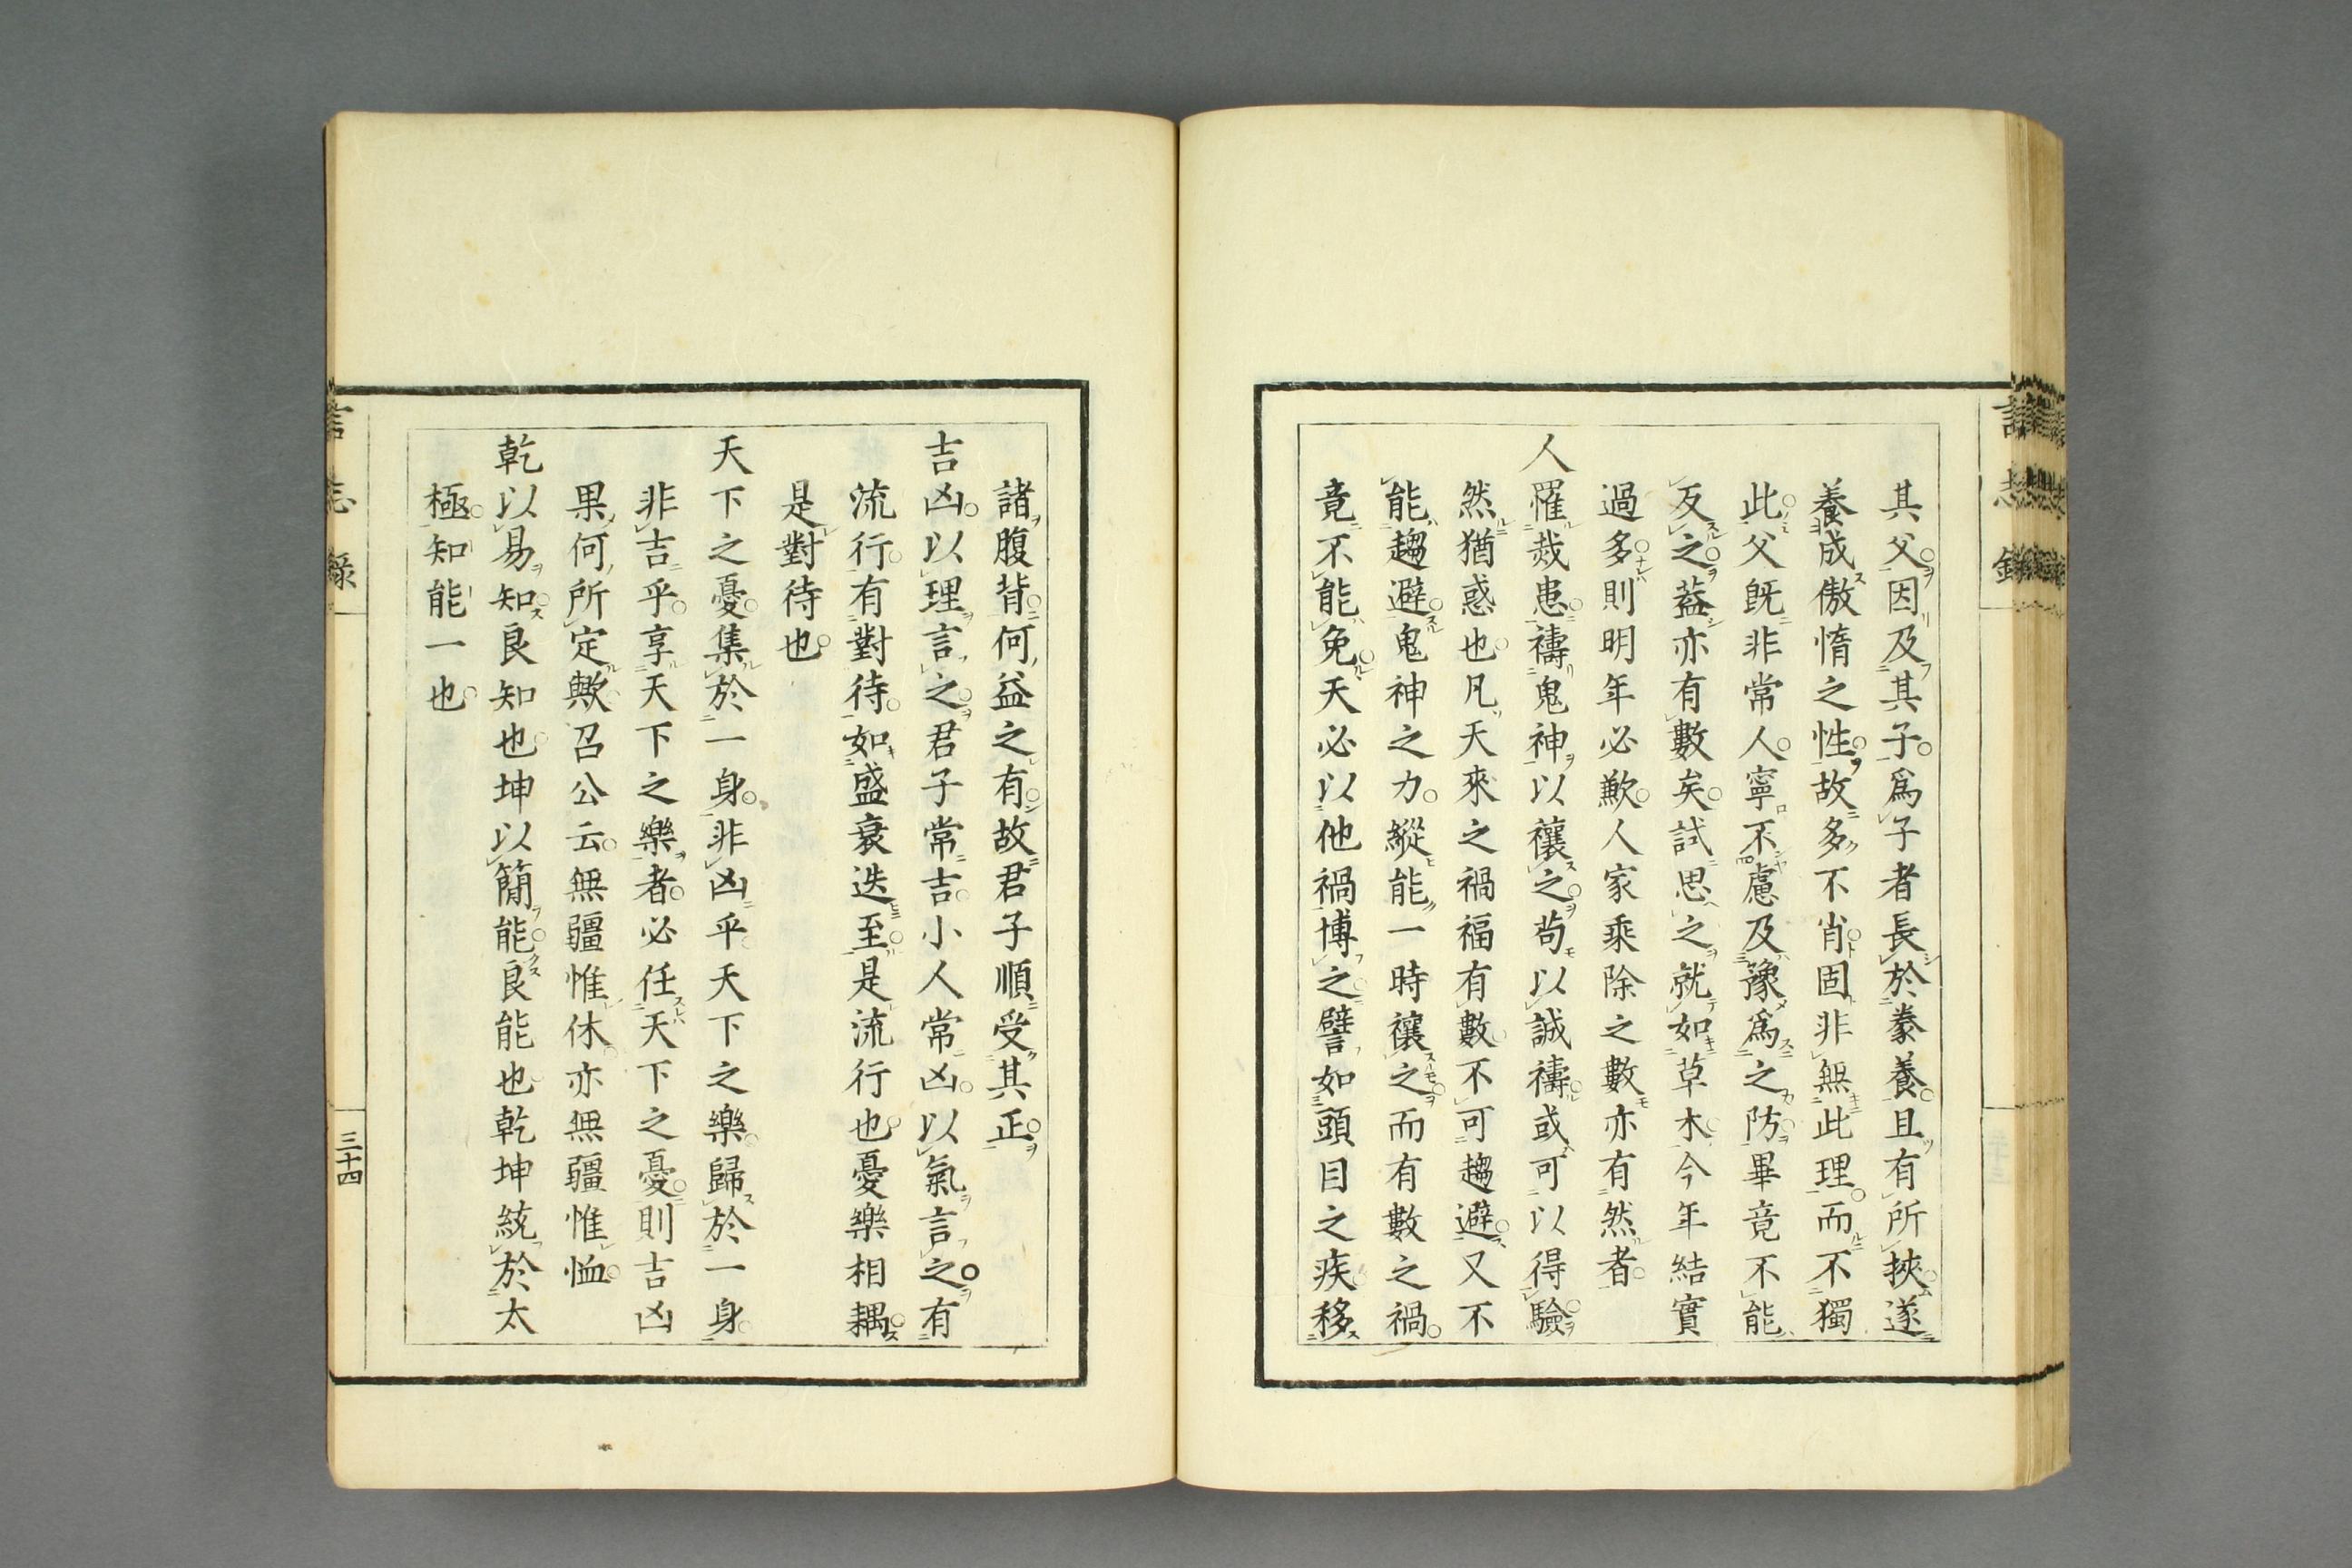 其父因及其子爲子者長於豢養且有所挾遂
養成傲惰之性故多不肖固非無此理而不獨
此父既非常人寧不慮及豫爲之防畢竟不能
反之葢亦有數矣試思之就如草木今年結實
過多則明年必歉人家乘除之數亦有然者
人罹烖患禱鬼神以禳之苟以誠禱或可以得驗
然猶惑也凡天來之禍福有數不可趨避又不
能趨避鬼神之力縱能一時禳之而有數之禍
竟不能免天必以他禍博之譬如頭目之疾移
諸腹背何益之有故君子順受其正
吉凶以理言之君子常吉小人常凶以氣言之有
流行有對待如盛衰迭至是流行也憂樂相耦
是對待也
天下之憂集於一身非凶乎天下之樂歸於一身
非吉乎享天下之樂者必任天下之憂則吉凶
果何所定歟召公云無疆惟休亦無疆惟恤
乾以易知良知也坤以簡能良能也乾坤統於太
極知能一也
言志錄
三十四